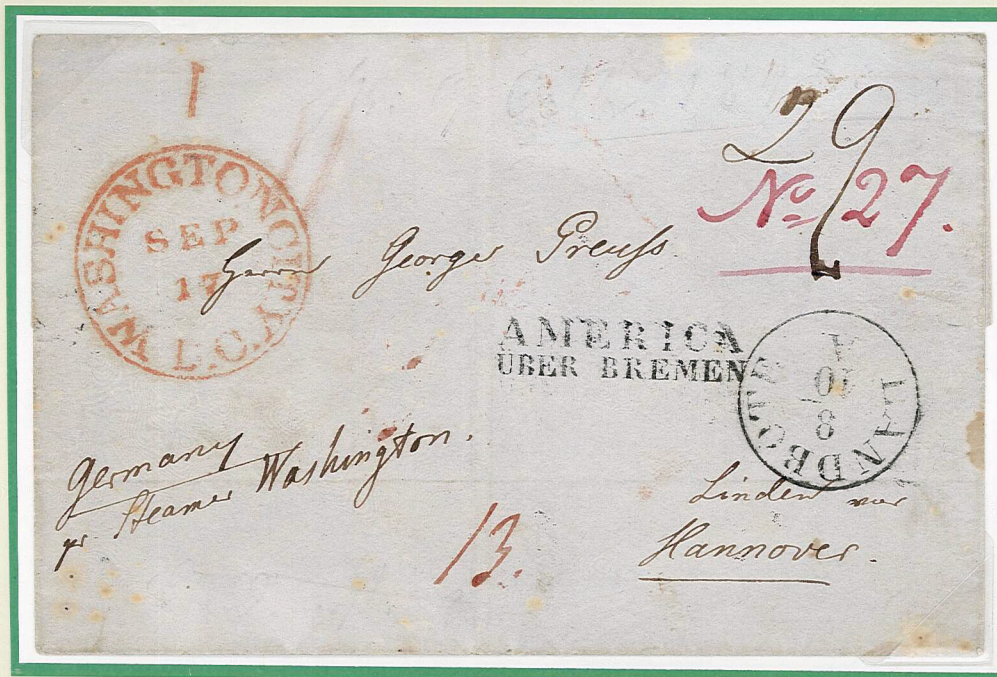 1
29
WASHINGTON CITY D.C.
SEP
17
No 27.
Herrn George Preuss.
AMERICA
UBER BREMEN
LANDBOTE
A
10
8
Germany
pr. Steamer Washington.
13.
Linden vor
Hannover.